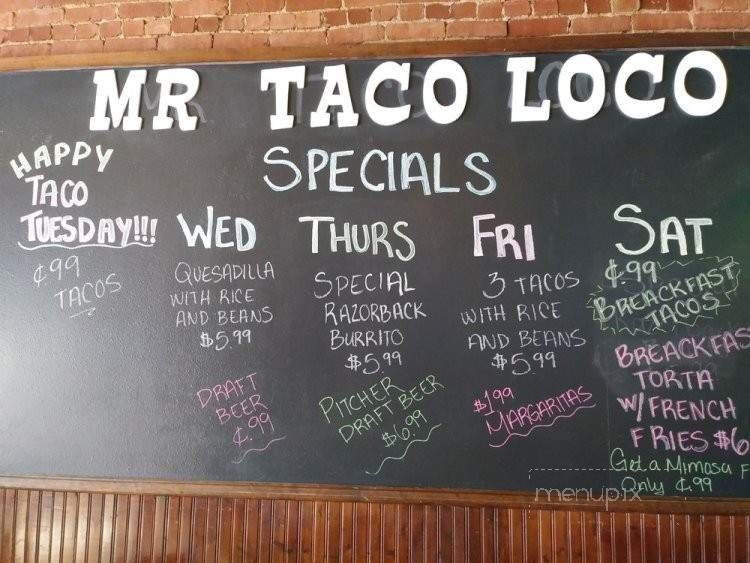 MR TACO LOCO
SPECIALS
HAPPY
TACO
TUESDAY!!!
¢99
TACOS
WED
QUESADILLA
WITH RICE
AND BEANS
$5.99
DRAFT
BEER
¢.99
THURS
SPECIAL
RAZORBACK
BURRITO
$5.99
PITCHER
DRAFT BEER
$6.99
FRI
3 TACOS
WITH RICE
AND BEANS
$5.99
$1.99
MARGARITAS
SAT
¢.99
BREACKFAST
TACOS
BREACKFAS
TORTA
W/FRENCH
FRIES $6
Get a Mimosa F
Only ¢.99
menupix